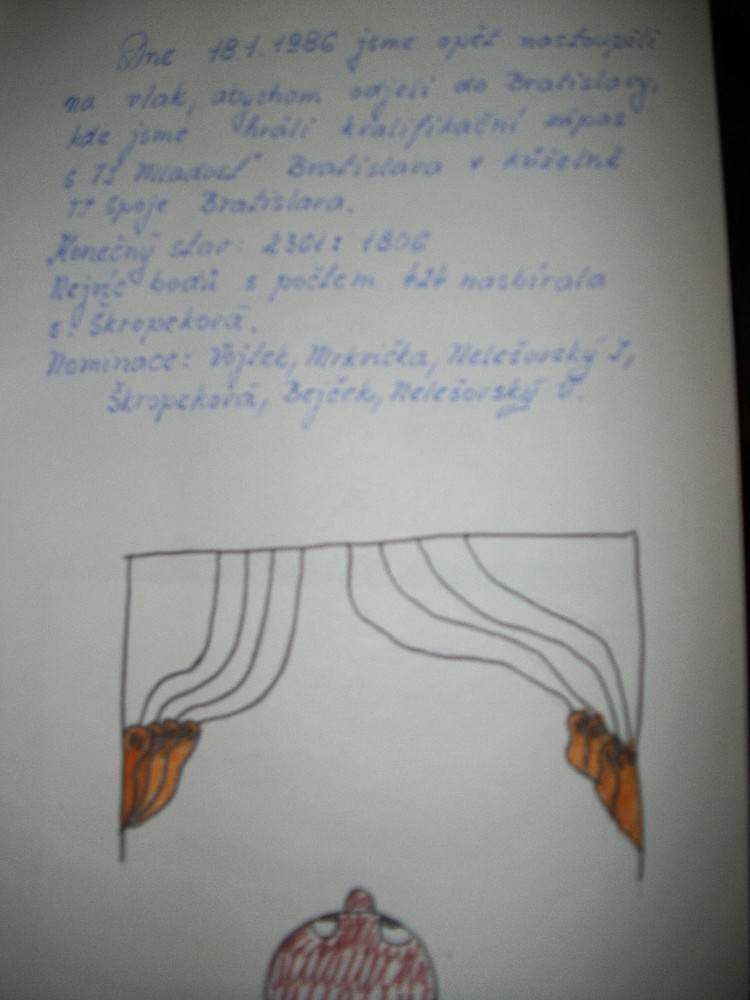 Dne 18.1.1986 jsme opět nastoupili
na vlak, abychom odjeli do Bratislavy,
kde jsme hráli kvalifikační zápas
s TJ Mladosť Bratislava v kuželně
TJ Spoje Bratislava.
Konečný stav: 2301: 1806
Nejvíc bodů s počtem 424 nasbírala
s. Škropeková.
Nominace: Vojtek, Mrkvička, Nelešovský I,
Škropeková, Bejček, Nelešovský